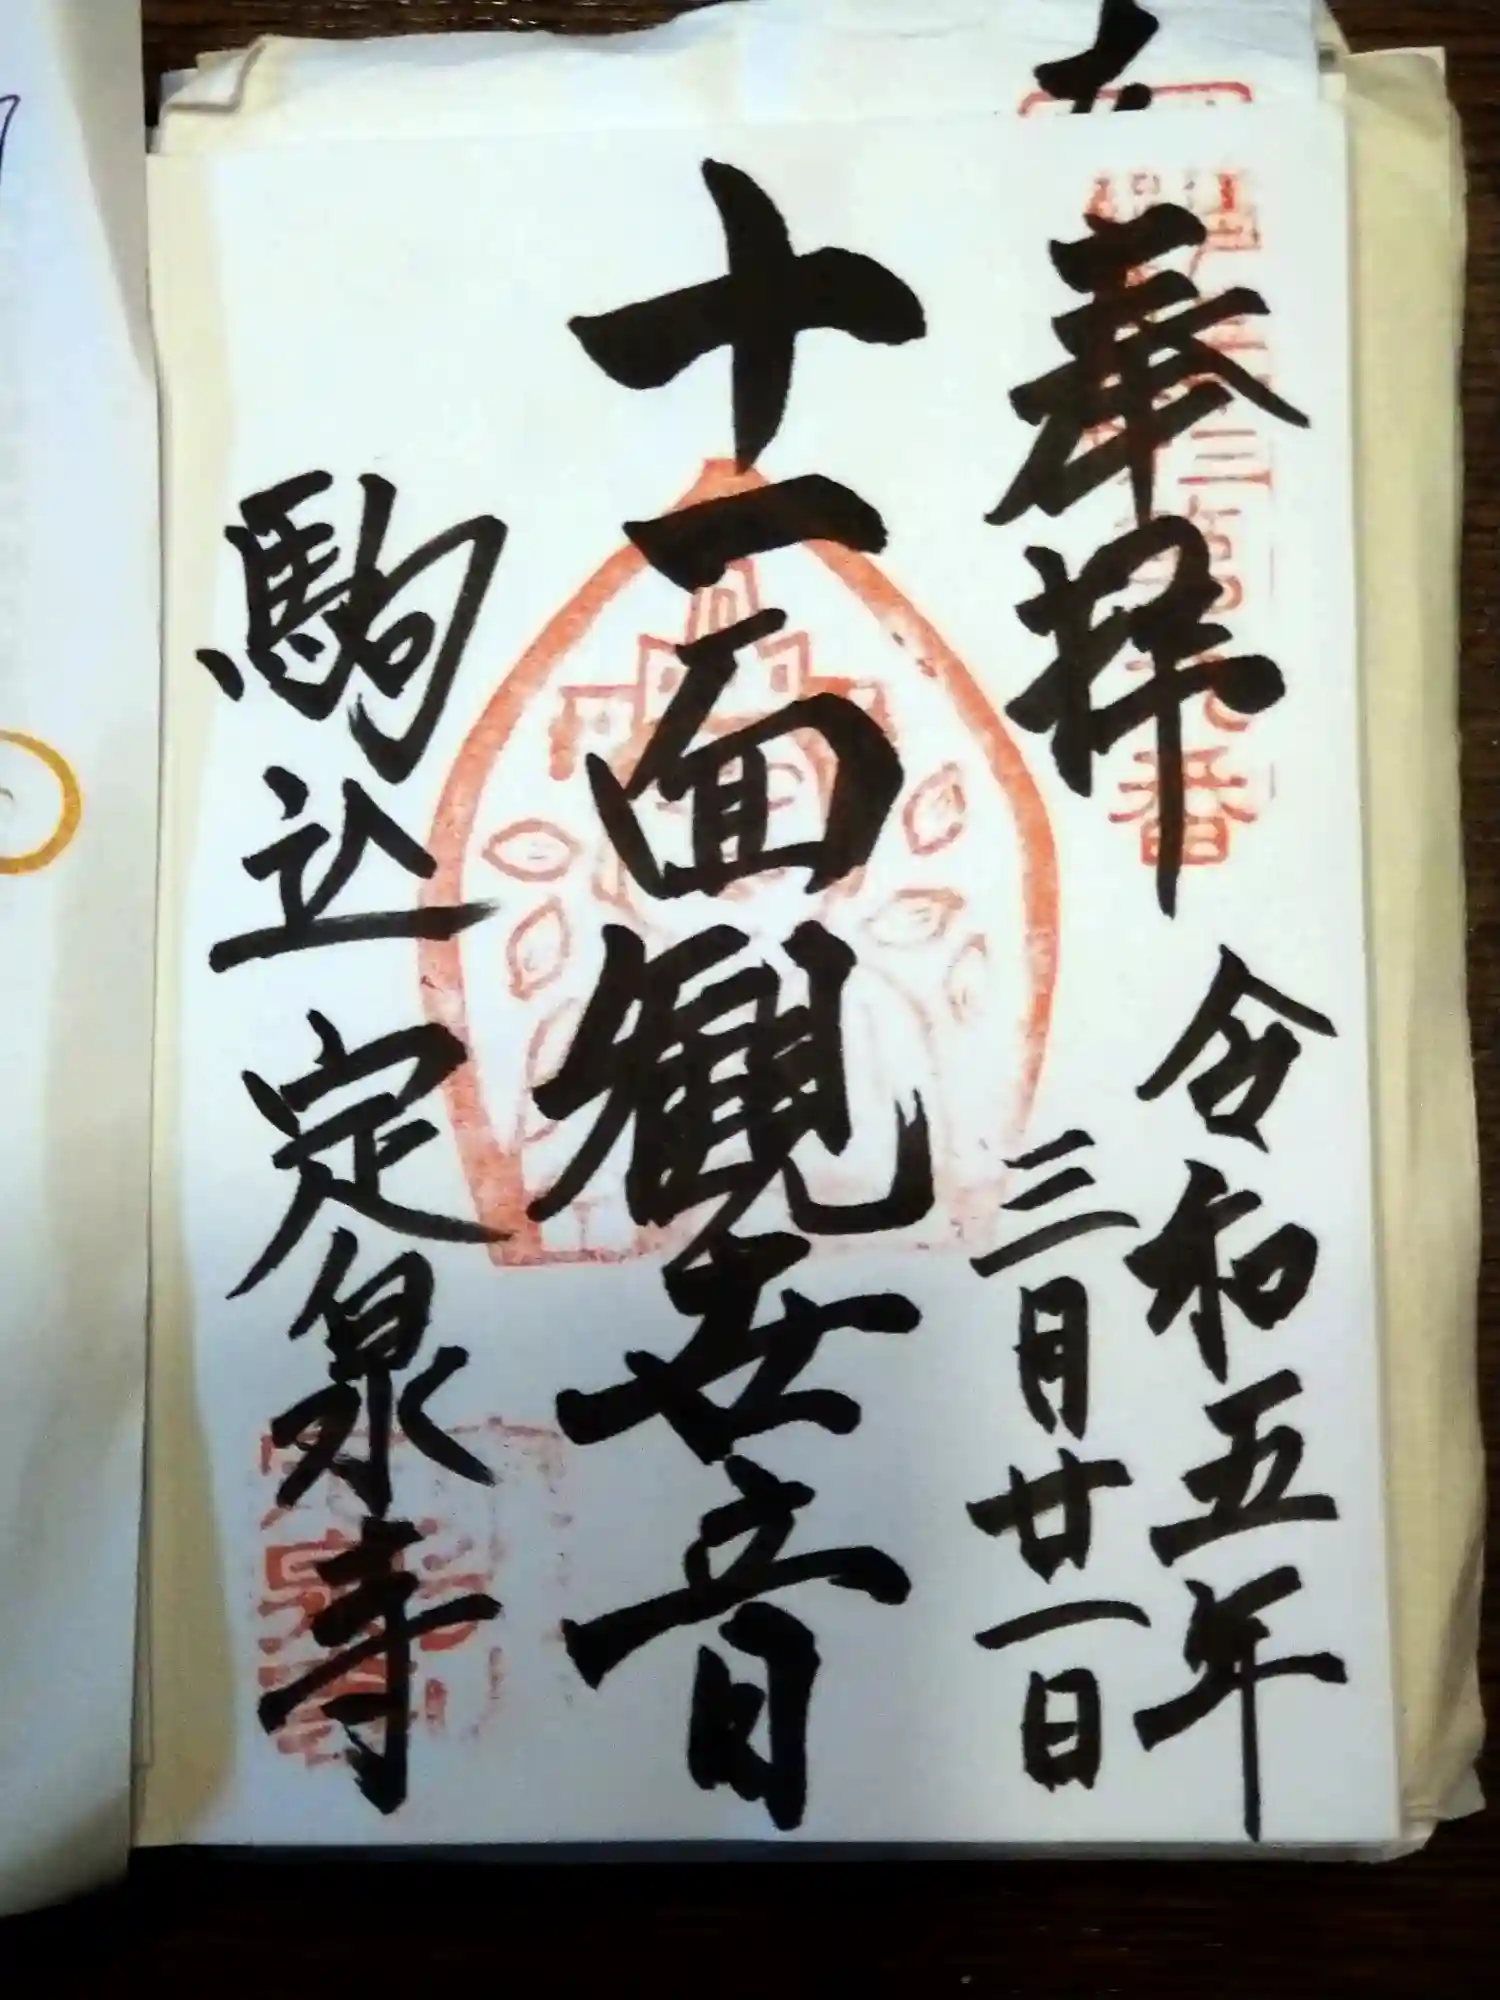 奉拝
令和五年
三月廿一日
十一面観世音
駒込定泉寺
番